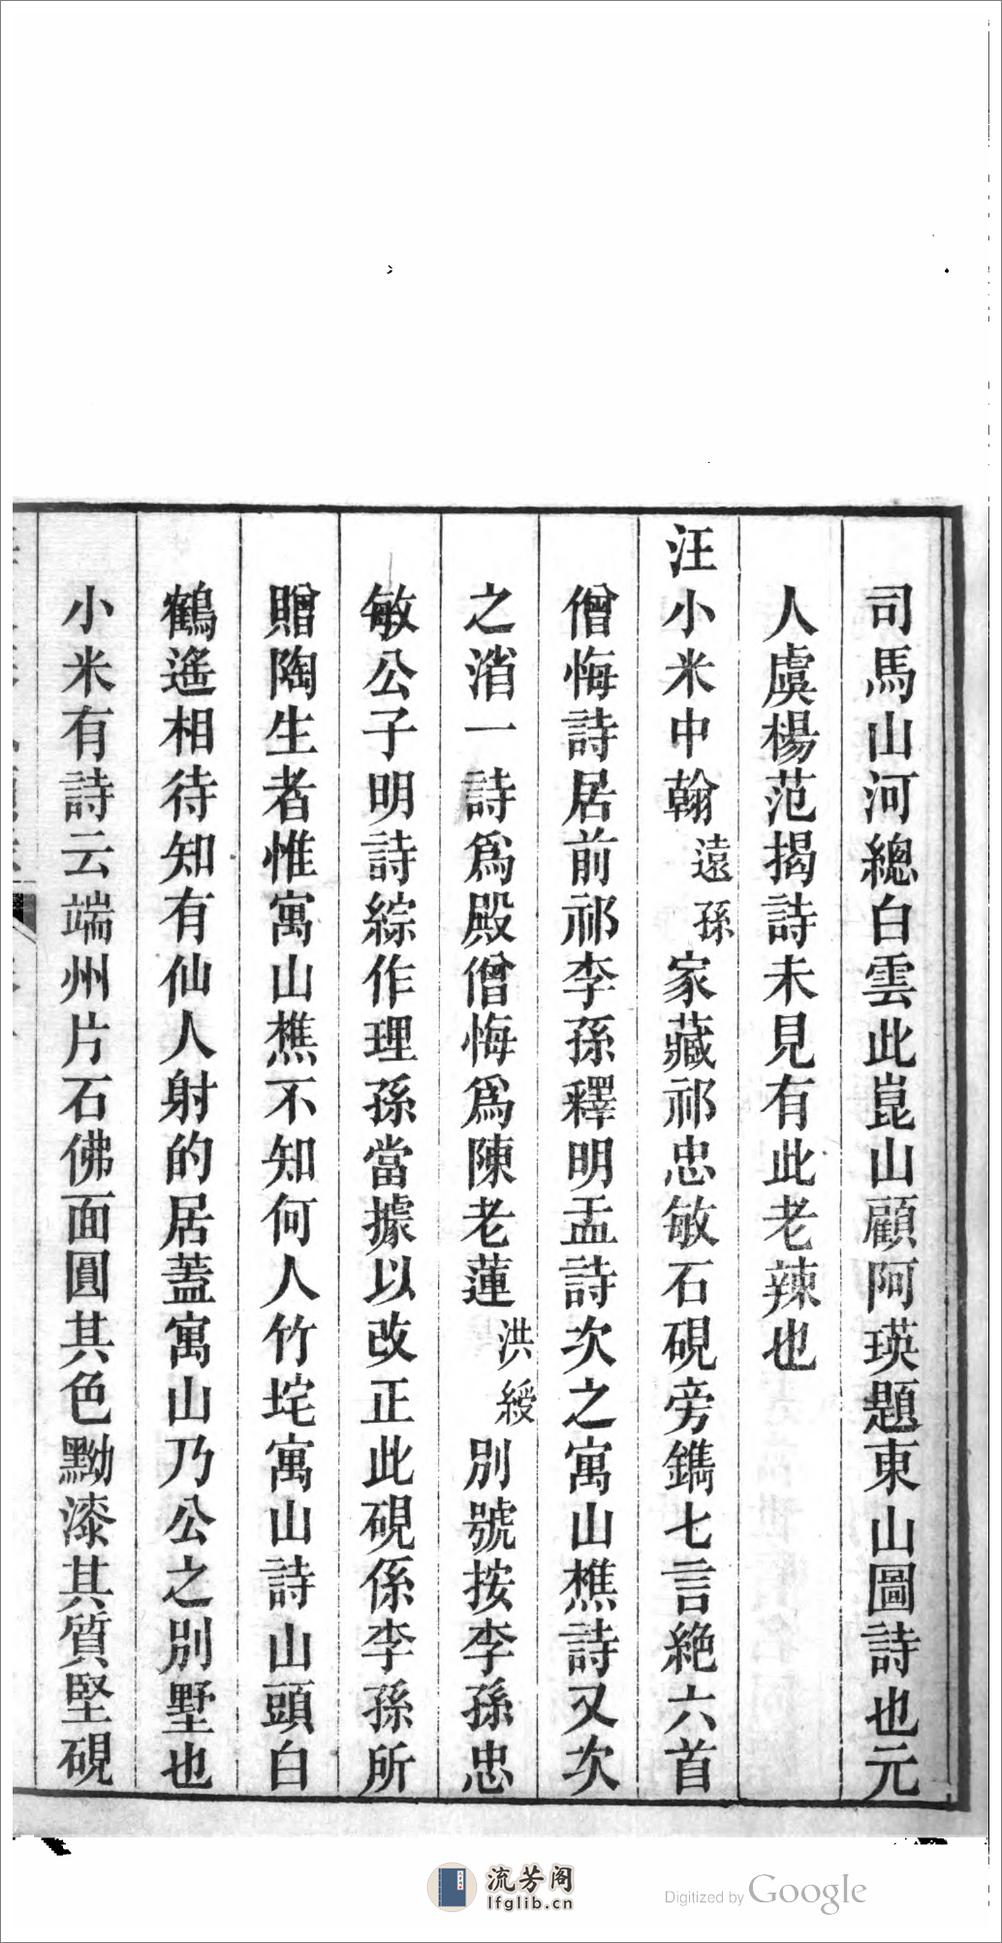 司馬山河總白雲此崑山顧阿瑛題東山圖詩也元
人虞楊范揭詩未見有此老辣也
汪小米中翰遠孫家藏祁忠敏石硯旁鐫七言絶六首
僧悔詩居前祁李孫釋明盂詩次之寓山樵詩又次
之消一詩爲殿僧悔爲陳老蓮洪綬別號按李孫忠
敏公子明詩綜作理孫當據以改正此硯係李孫所
贈陶生者惟寓山樵不知何人竹垞寓山詩山頭白
鶴遙相待知有仙人射的居蓋寓山乃公之別墅也
小米有詩云端州片石佛面圓其色黝漆其質堅硯
流芳阁
lfglib.cn
Digitized by Google